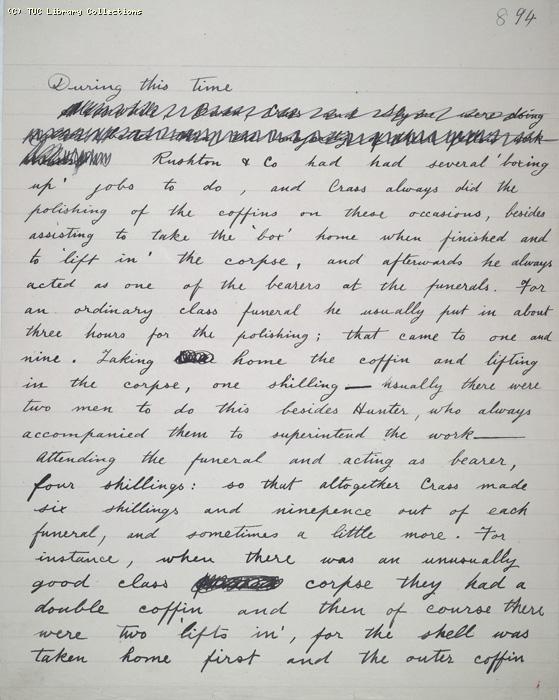 (C) TUC Library Collections
894
During this time
were doing
work
Rushton & Co had had several 'boxing
up' jobs to do, and Crass always did the
polishing of the coffins on these occasions, besides
assisting to take the 'box' home when finished and
to 'lift in' the corpse, and afterwards he always
acted as one of the bearers at the funerals. For
an ordinary class funeral he usually put in about
three hours for the polishing; that came to one and
nine. Taking home the coffin and lifting
in the corpse, one shilling — usually there were
two men to do this besides Hunter, who always
accompanied them to superintend the work —
Attending the funeral and acting as bearer,
four shillings: so that altogether Crass made
six shillings and ninepence out of each
funeral, and sometimes a little more. For
instance, when there was an unusually
good class corpse they had a
double coffin and then of course there
were two 'lifts in', for the shell was
taken home first and the outer coffin